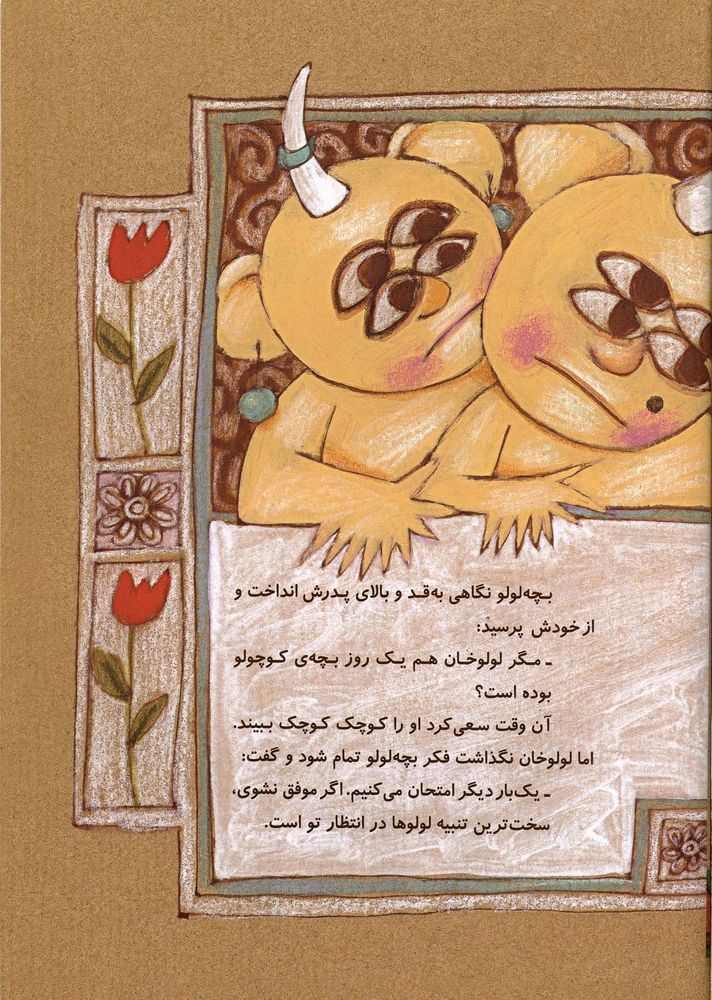 بچه‌لولو نگاهی به‌قد و بالای پدرش انداخت و
از خودش پرسید:
ـ مگر لولوخان هم یک روز بچه‌ی کوچولو
بوده است؟
آن وقت سعی‌کرد او را کوچک کوچک ببیند.
اما لولوخان نگذاشت فکر بچه‌لولو تمام شود و گفت:
ـ یک‌بار دیگر امتحان می‌کنیم. اگر موفق نشوی،
سخت‌ترین تنبیه لولوها در انتظار تو است.